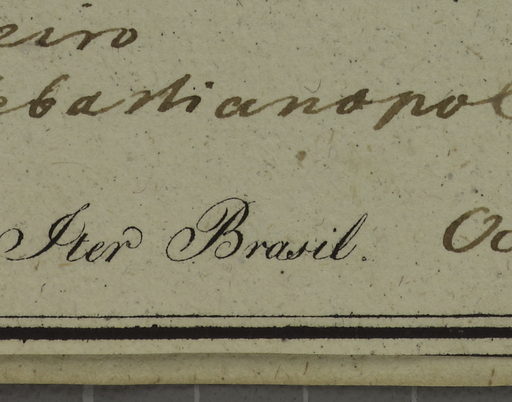 eiro
ebastianopol
Iter Brasil. Oc